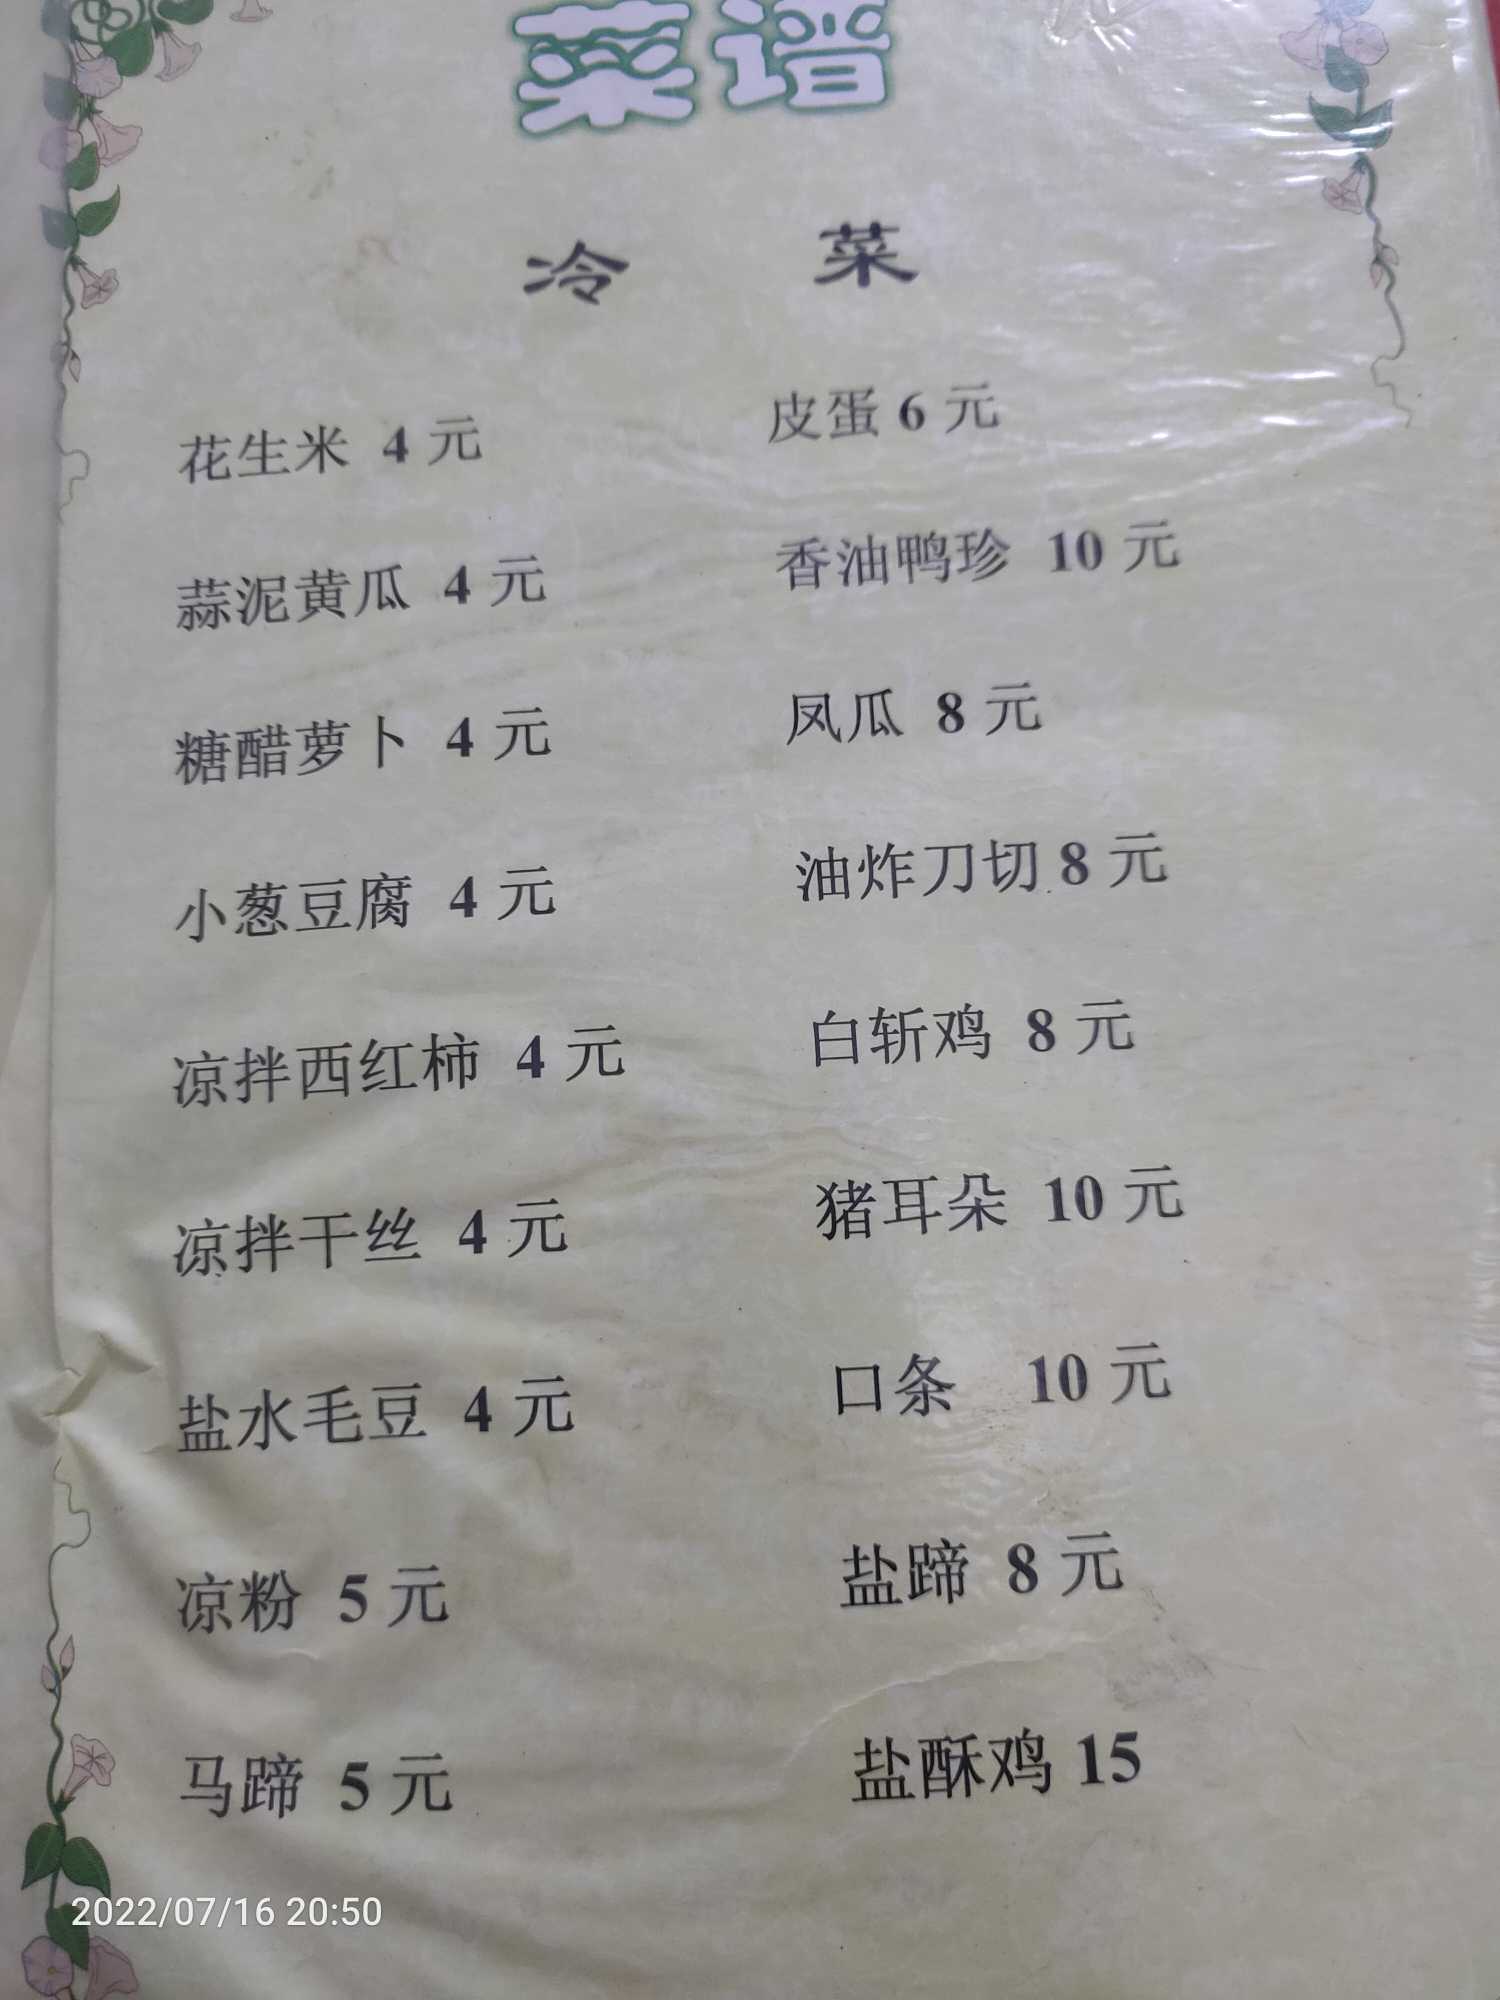 菜谱
冷 菜
花生米 4 元
皮蛋 6 元
蒜泥黄瓜 4 元
香油鸭珍 10 元
糖醋萝卜 4 元
凤瓜 8 元
小葱豆腐 4 元
油炸刀切 8 元
凉拌西红柿 4 元
白斩鸡 8 元
凉拌干丝 4 元
猪耳朵 10 元
盐水毛豆 4 元
口条 10 元
凉粉 5 元
盐蹄 8 元
马蹄 5 元
盐酥鸡 15
2022/07/16 20:50